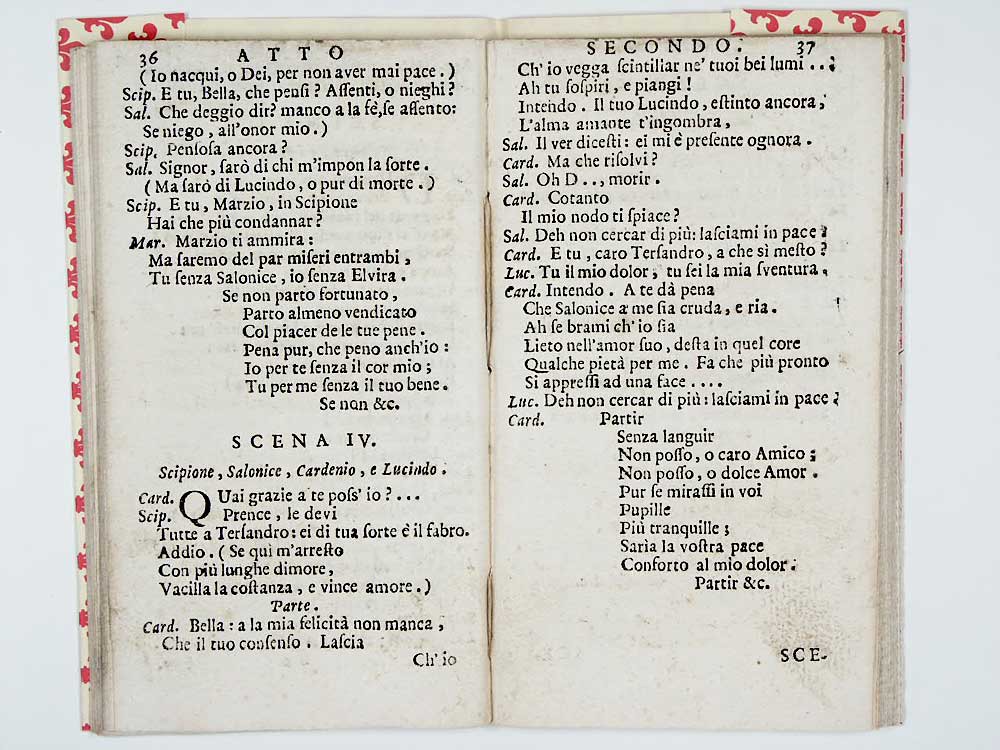 36 ATTO
(Io nacqui, o Dei, per non aver mai pace.)
Scip. E tu, Bella, che penſi? Aſſenti, o nieghi?
Sal. Che deggio dir? manco a la fè, ſe aſſento:
Se niego, all'onor mio.)
Scip. Penſoſa ancora?
Sal. Signor, ſarò di chi m'impon la ſorte.
(Ma ſarò di Lucindo, o pur di morte.)
Scip. E tu, Marzio, in Scipione
Hai che più condannar?
Mar. Marzio ti ammira:
Ma ſaremo del par miſeri entrambi,
Tu ſenza Salonice, io ſenza Elvira.
Se non parto fortunato,
Parto almeno vendicato
Col piacer de le tue pene.
Pena pur, che peno anch'io:
Io per te ſenza il cor mio;
Tu per me ſenza il tuo bene.
Se non &c.
SCENA IV.
Scipione, Salonice, Cardenio, e Lucindo.
Card. QUai grazie a te poſs' io?...
Scip. Prence, le devi
Tutte a Terſandro: ei di tua ſorte è il fabro.
Addio. (Se quì m'arreſto
Con più lunghe dimore,
Vacilla la coſtanza, e vince amore.)
Parte.
Card. Bella: a la mia felicità non manca,
Che il tuo conſenſo. Laſcia
Ch' io
SECONDO. 37
Ch' io vegga ſcintillar ne' tuoi bei lumi...
Ah tu ſoſpiri, e piangi!
Intendo. Il tuo Lucindo, eſtinto ancora,
L'alma amante t'ingombra,
Sal. Il ver diceſti: ei mi è preſente ognora.
Card. Ma che riſolvi?
Sal. Oh D.., morir.
Card. Cotanto
Il mio nodo ti ſpiace?
Sal. Deh non cercar di più: laſciami in pace;
Card. E tu, caro Terſandro, a che sì meſto?
Luc. Tu il mio dolor, tu ſei la mia ſventura.
Card. Intendo. A te dà pena
Che Salonice a me ſia cruda, e ria.
Ah ſe brami ch' io ſia
Lieto nell'amor ſuo, deſta in quel core
Qualche pietà per me. Fa che più pronto
Si appreſſi ad una face....
Luc. Deh non cercar di più: laſciami in pace;
Card. Partir
Senza languir
Non poſſo, o caro Amico;
Non poſſo, o dolce Amor.
Pur ſe miraſſi in voi
Pupille
Più tranquille;
Sarìa la voſtra pace
Conforto al mìo dolor.
Partir &c.
SCE-